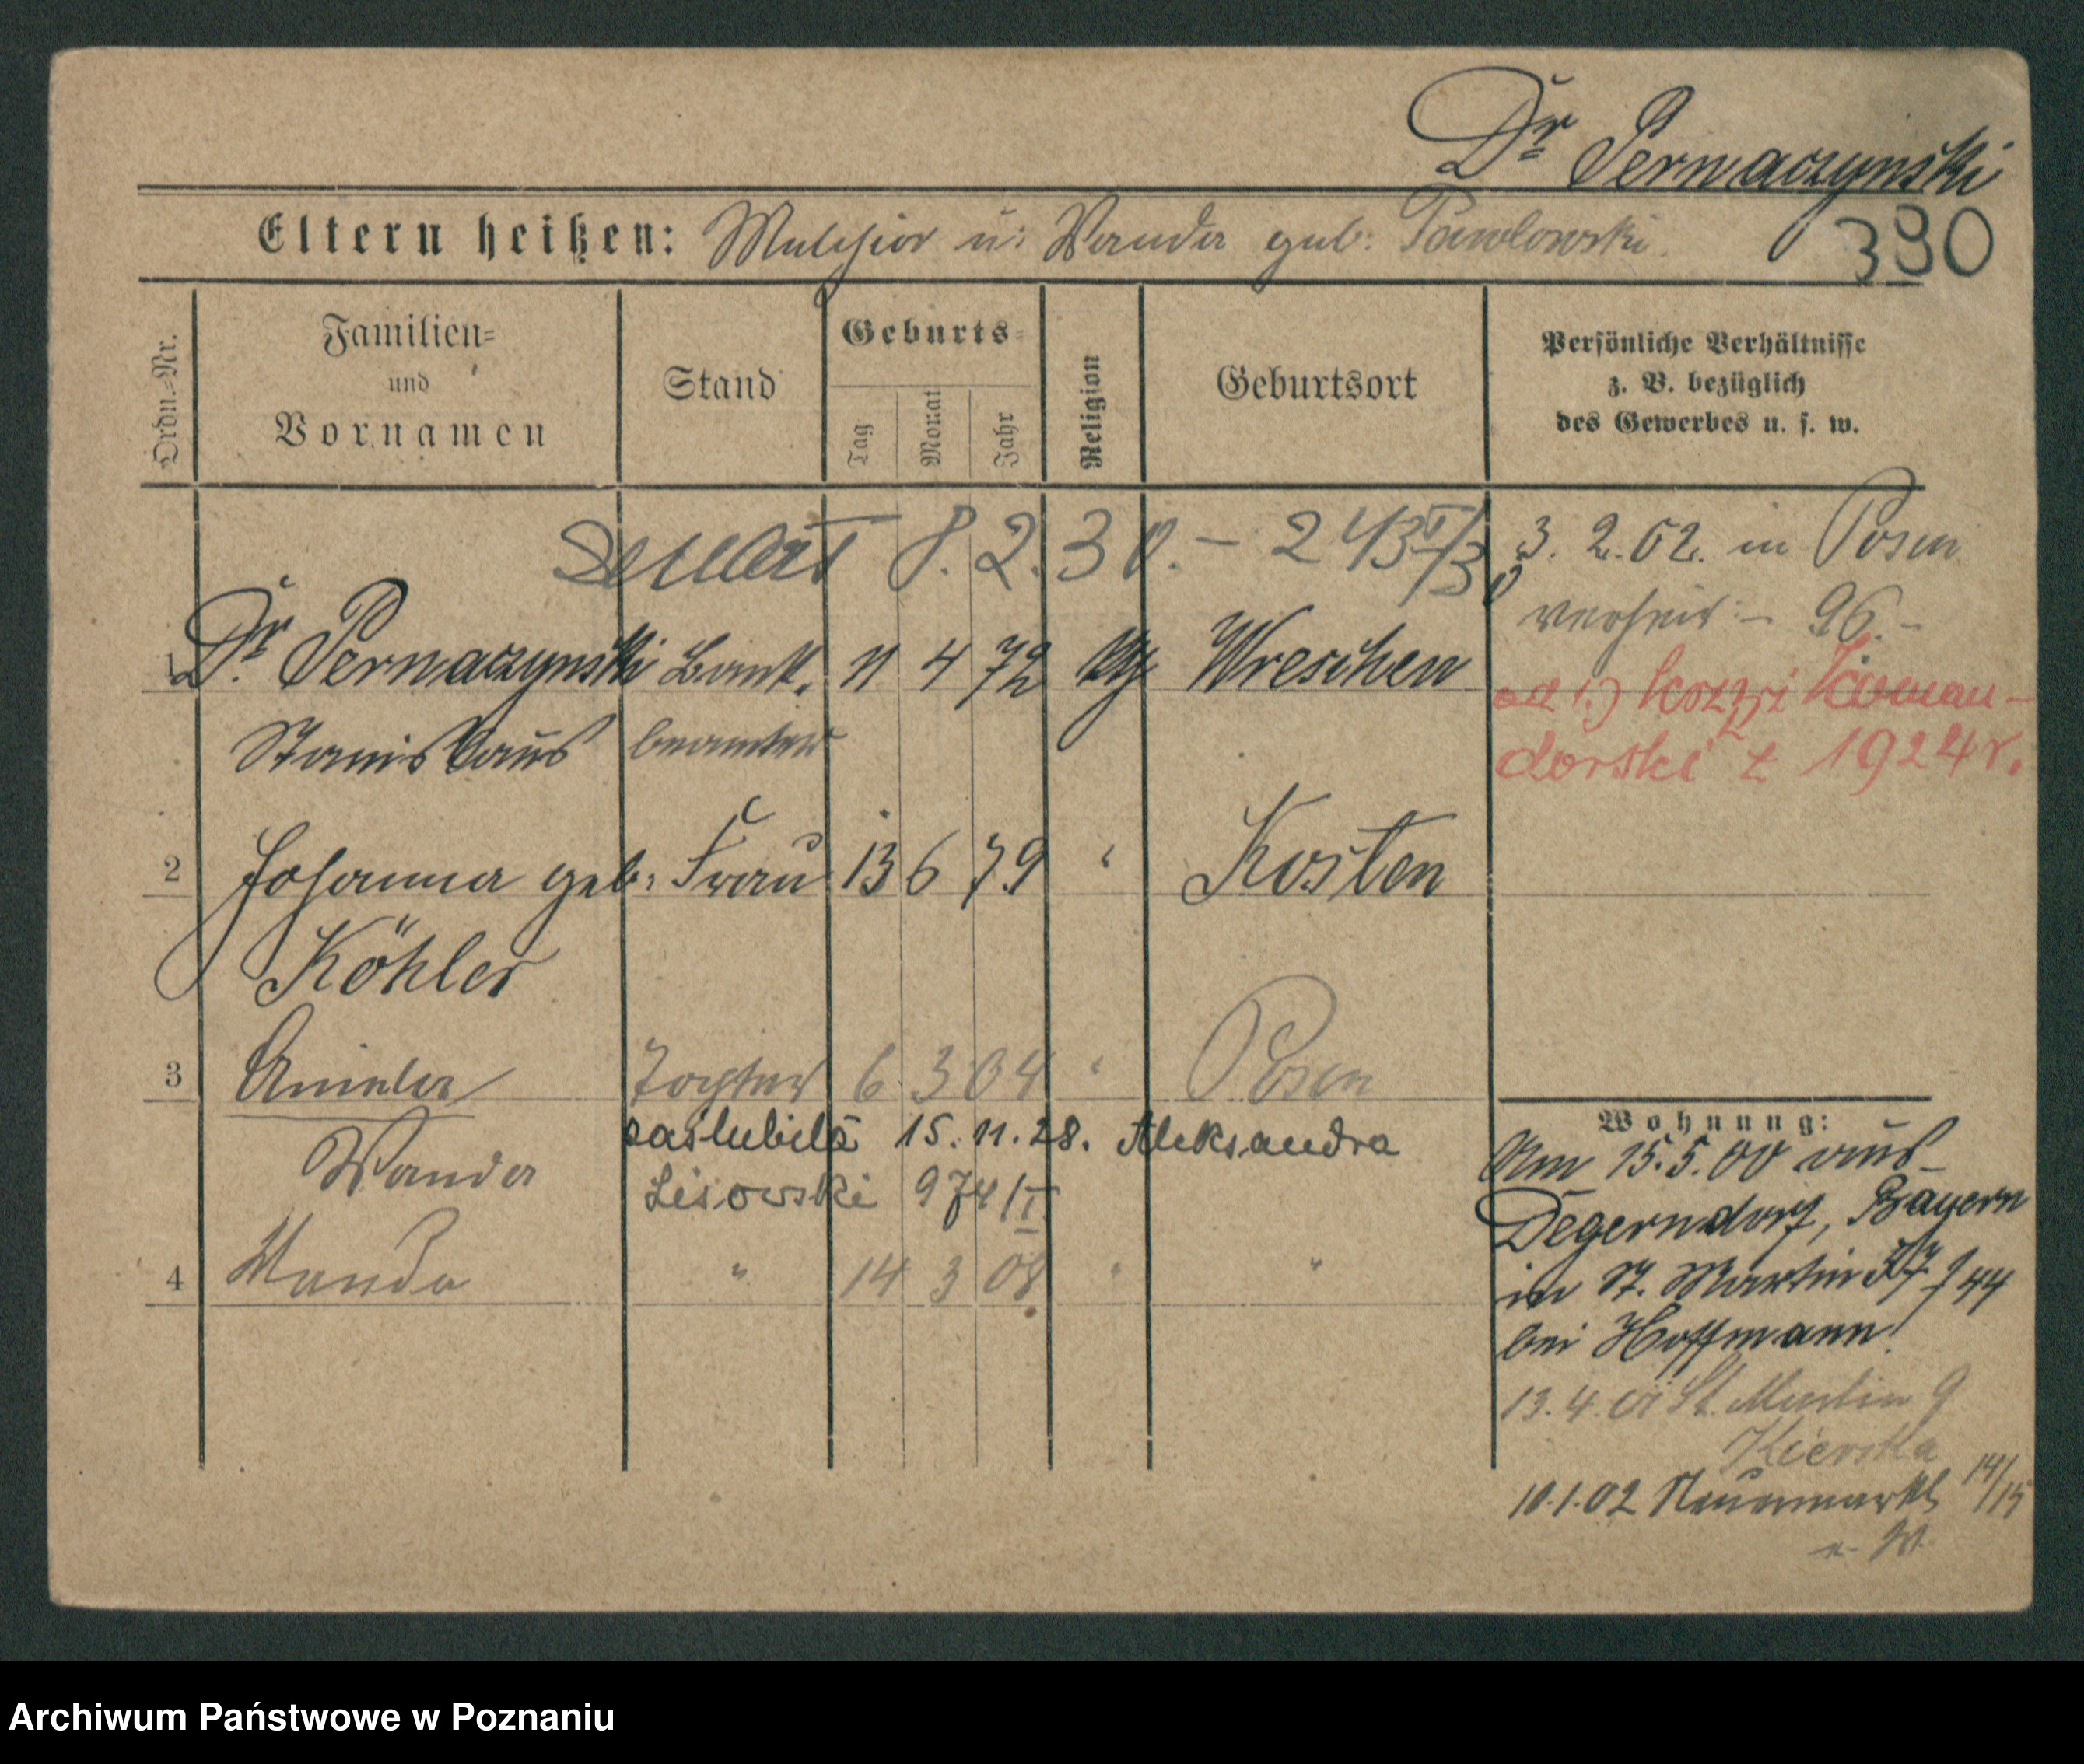 Dr Pernaczynski
Eltern heißen: Melchior u: Wanda geb: Pawlowski.
390
Ordn.-Nr.
Familien-
und
Vornamen
Stand
Geburts-
Tag
Monat
Jahr
Religion
Geburtsort
Persönliche Verhältnisse
z. B. bezüglich
des Gewerbes u. s. w.
8.2.30. – 243
3. 2. 02. in Posen
verheir: – 96. –
1 Dr. Pernaczynski Bank. 11 4 72 Wreschen
Stanislaus beamter
krzyż Koman-
dorski z 1924 r.
2 Johanna geb: Frau 13 6 79 " Kosten
Köhler
3 Aniela Tochter 6 3 04 " Posen
zaślubiła 15.11.28. Aleksandra
Wanda
Lisowski 974/II
4 Wanda " 14 3 08 " "
Wohnung:
Am 15.5.00 aus
Degerndorf, Bayern
in St. Martin 37 / 44
bei Hoffmann!
13.4.01 St. Martin 9
10.1.02 Neuermarkt 14/15
Archiwum Państwowe w Poznaniu